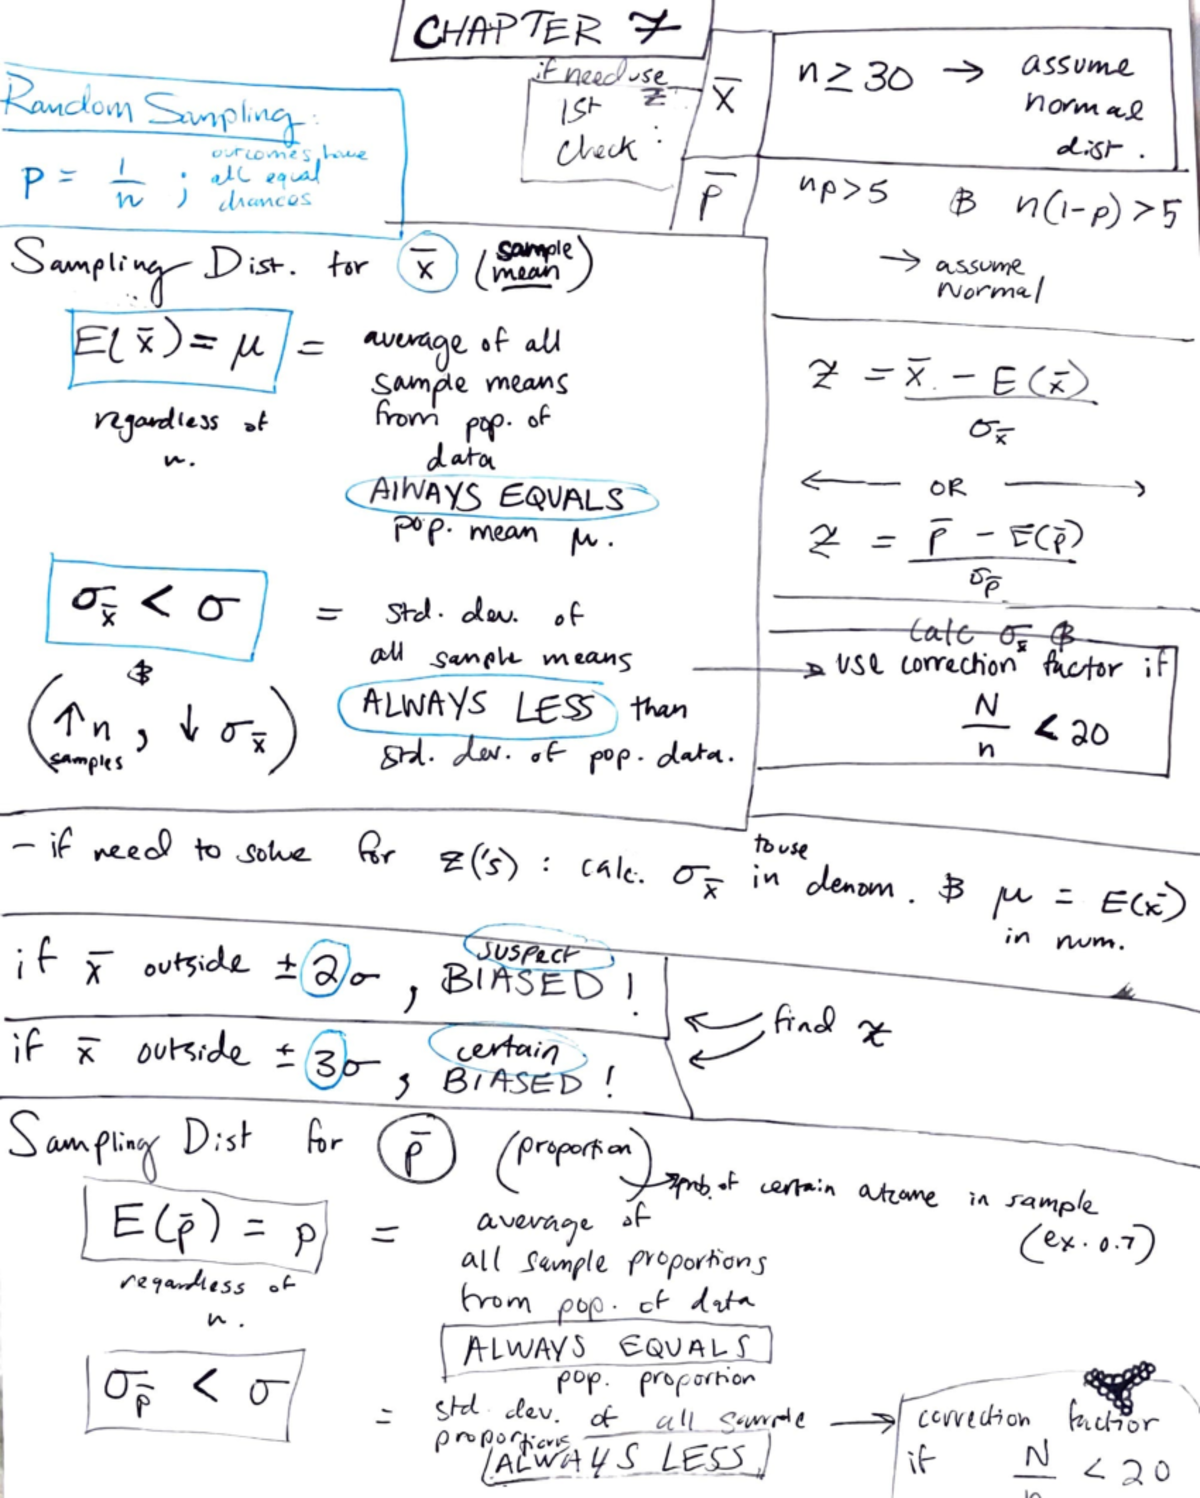 CHAPTER 7
Random Sampling:
p = 1/n ; outcomes have
all equal
chances
if need use
z
1st
check :
x̄
n ≥ 30 → assume
normal
dist.
p̄
np > 5 & n(1-p) > 5
→ assume
Normal
Sampling Dist. for x̄ (sample
mean)
E(x̄) = μ = average of all
sample means
from pop. of
data
regardless of
n.
ALWAYS EQUALS
pop. mean μ.
σx̄ < σ = std. dev. of
all sample means
&
ALWAYS LESS than
(↑n, ↓ σx̄)
samples
std. dev. of pop. data.
z = x̄ - E(x̄)
σx̄
← OR →
z = p̄ - E(p̄)
σp̄
calc σx̄ &
→ use correction factor if
N/n < 20
- if need to solve for z('s) : calc. σx̄ to use in denom. & μ = E(x̄)
in num.
if x̄ outside ± 2σ, suspect
BIASED!
if x̄ outside ± 3σ, certain
BIASED!
find z
Sampling Dist for p̄ (proportion)
→ prob. of certain outcome in sample
(ex. 0.7)
E(p̄) = p = average of
all sample proportions
from pop. of data
regardless of
n.
ALWAYS EQUALS
pop. proportion
σp̄ < σ
= std. dev. of all sample
proportions
ALWAYS LESS
→ correction factor
if N/n < 20